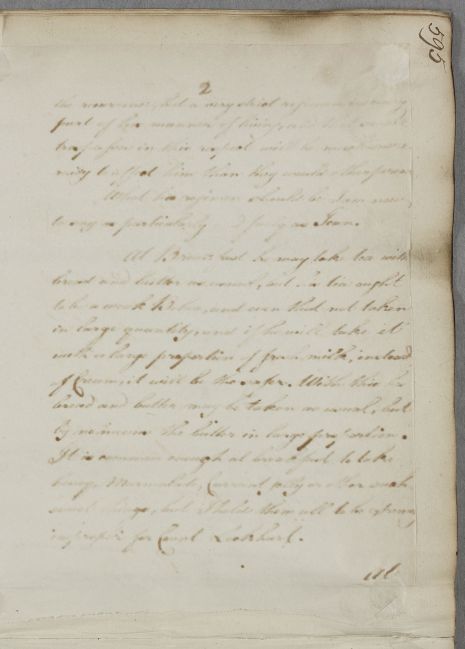 595
2
the          but a very strict regimen in every
part of his manner of living, and that small
trespasses in this respect will be more
     to affect him than they would other persons
What his regimen should be I am now
to say as particularly & fully as I can.
At Breakfast he may take tea with
bread and butter as usual, but the tea ought
to be a weak          and even that not taken
in large quantity, and if he will take it
with a large proportion of fresh milk, instead
of Cream, it will be the safer. With this his
bread and butter may be taken as usual, but
by no means the butter in large proportion.
It is common enough at breakfast to take
honey, Marmalade, Currant jelly or other such
sweet things, but I hold them all to be very
improper for Capt Lockhart.
At